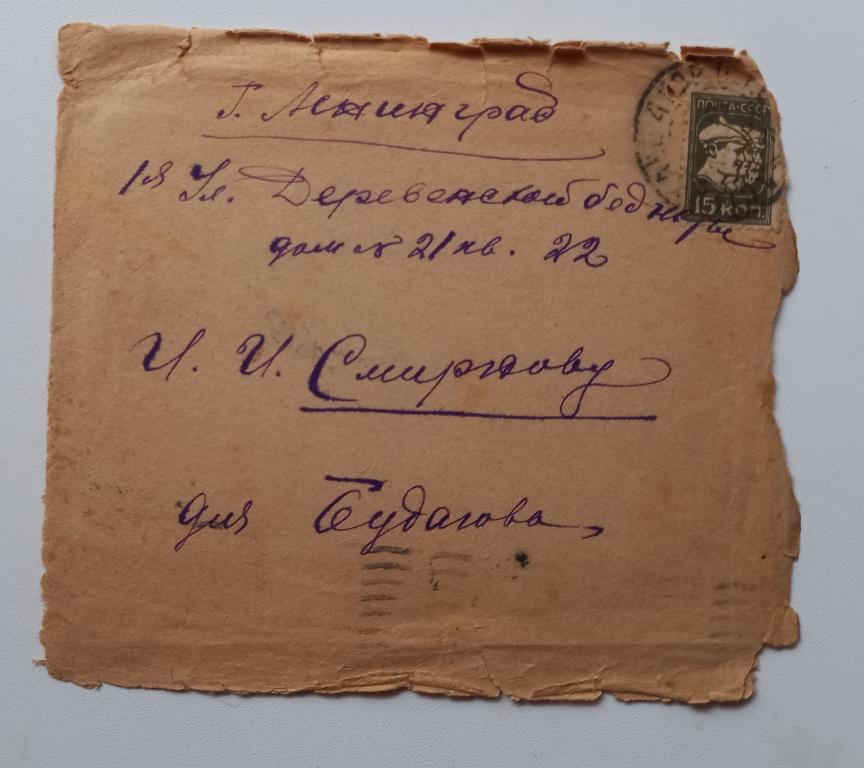 г. Ленинград
ПОЧТА-СССР
15 КОП.
1я Ул. Деревенской бедноты
дом № 21 кв. 22
И. И. Смирнову
для Будагова